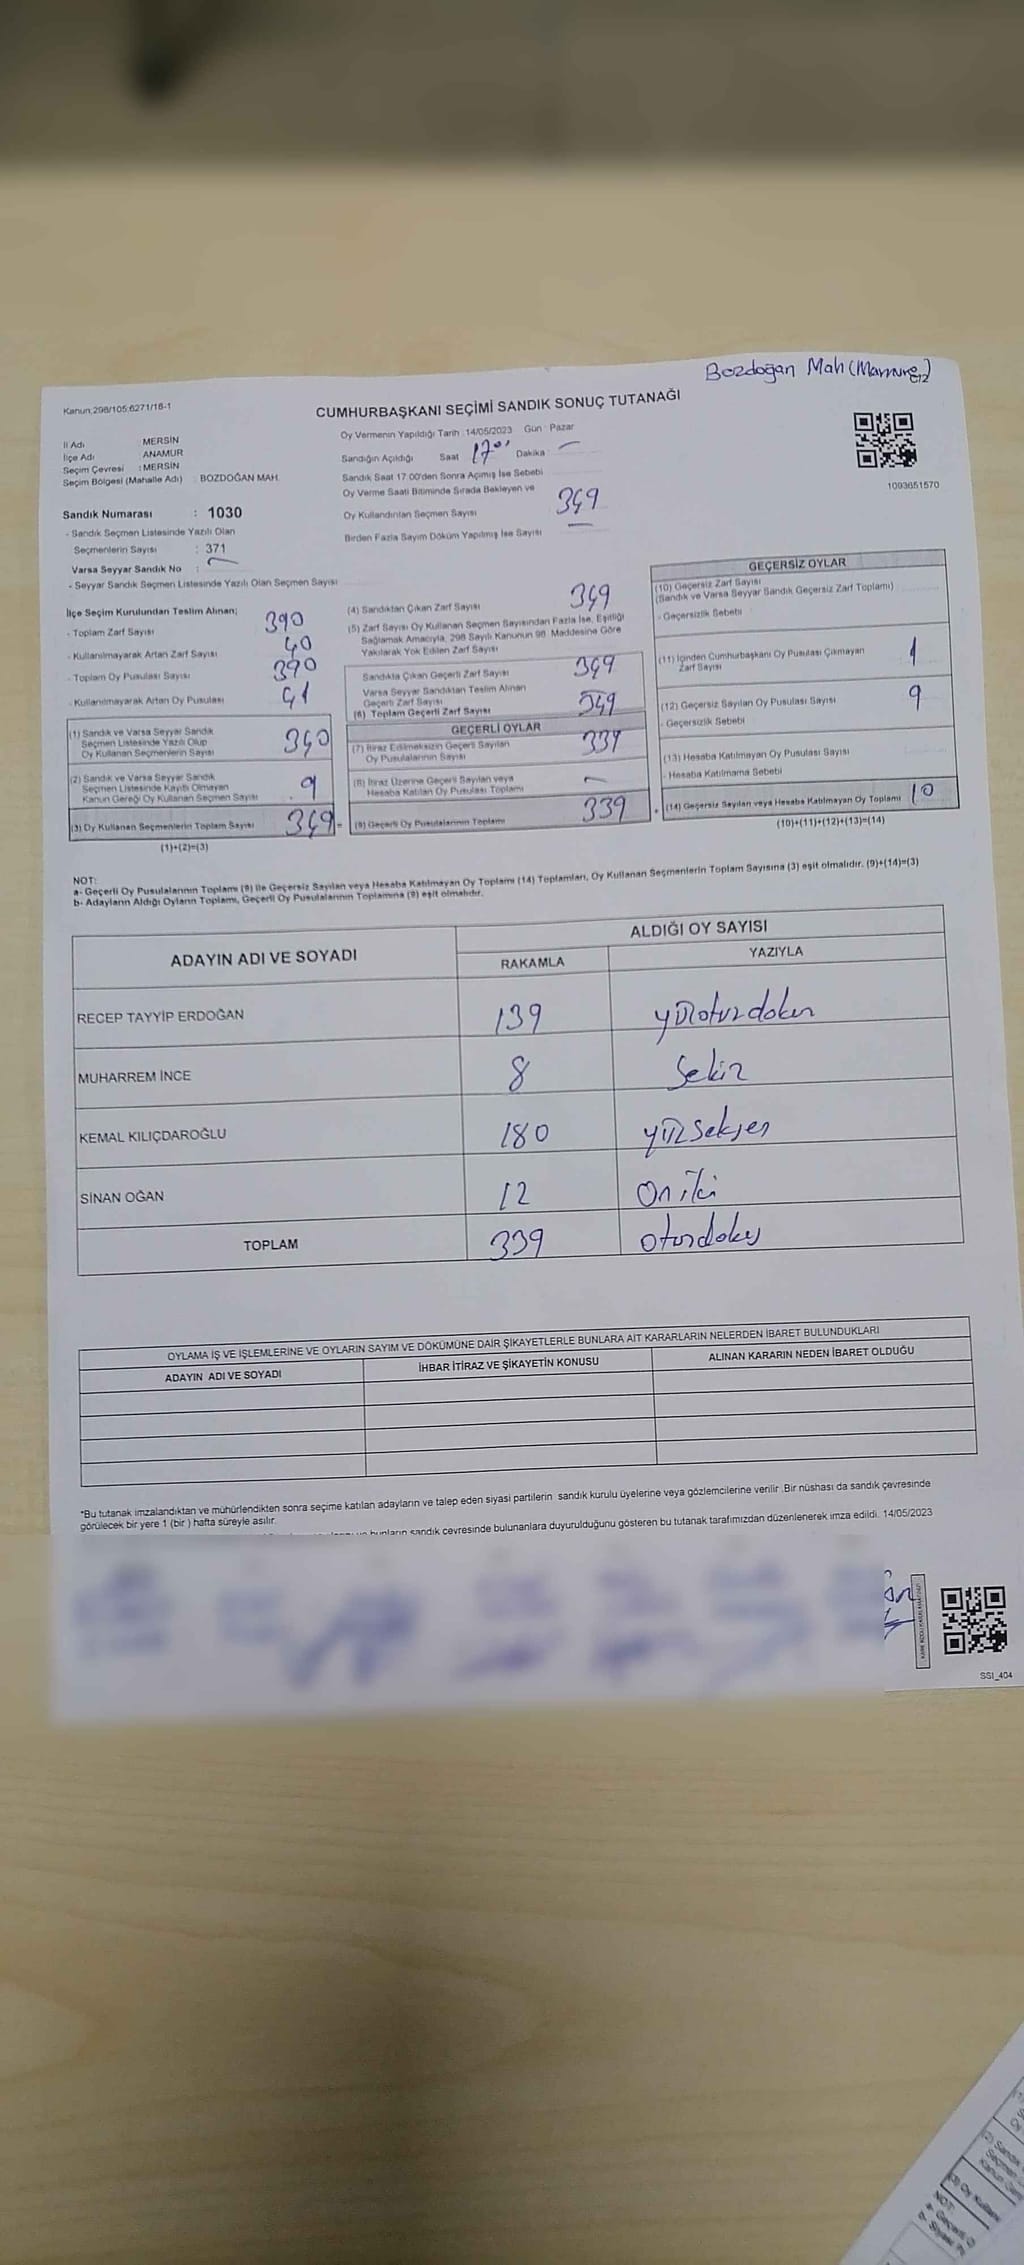 Bozdoğan Mah (Mamure)
Kanun;298/105;6271/18-1
CUMHURBAŞKANI SEÇİMİ SANDIK SONUÇ TUTANAĞI
İl Adı MERSİN
İlçe Adı ANAMUR
Seçim Çevresi : MERSİN
Seçim Bölgesi (Mahalle Adı) : BOZDOĞAN MAH.
Sandık Numarası : 1030
- Sandık Seçmen Listesinde Yazılı Olan
Seçmenlerin Sayısı : 371
Varsa Seyyar Sandık No : —
- Seyyar Sandık Seçmen Listesinde Yazılı Olan Seçmen Sayısı
Oy Vermenin Yapıldığı Tarih :14/05/2023 Gün : Pazar
Sandığın Açıldığı Saat 17 00 Dakika —
Sandık Saat 17.00'den Sonra Açımış İse Sebebi
Oy Verme Saati Bitiminde Sırada Bekleyen ve
Oy Kullandırılan Seçmen Sayısı 349
Birden Fazla Sayım Döküm Yapılmış İse Sayısı —
1093651570
İlçe Seçim Kurulundan Teslim Alınan;
- Toplam Zarf Sayısı 390
- Kullanılmayarak Artan Zarf Sayısı 40
- Toplam Oy Pusulası Sayısı 390
- Kullanılmayarak Artan Oy Pusulası 41
(1) Sandık ve Varsa Seyyar Sandık
Seçmen Listesinde Yazılı Olup
Oy Kullanan Seçmenlerin Sayısı 340
(2) Sandık ve Varsa Seyyar Sandık
Seçmen Listesinde Kayıtlı Olmayan
Kanun Gereği Oy Kullanan Seçmen Sayısı 9
(3) Oy Kullanan Seçmenlerin Toplam Sayısı 349 =
(1)+(2)=(3)
(4) Sandıktan Çıkan Zarf Sayısı 349
(5) Zarf Sayısı Oy Kullanan Seçmen Sayısından Fazla İse, Eşitliği
Sağlamak Amacıyla, 298 Sayılı Kanunun 98. Maddesine Göre
Yakılarak Yok Edilen Zarf Sayısı
Sandıkta Çıkan Geçerli Zarf Sayısı 349
Varsa Seyyar Sandıktan Teslim Alınan
Geçerli Zarf Sayısı
(6) Toplam Geçerli Zarf Sayısı 349
GEÇERLİ OYLAR
(7) İtiraz Edilmeksizin Geçerli Sayılan
Oy Pusulalarının Sayısı 339
(8) İtiraz Üzerine Geçerli Sayılan veya
Hesaba Katılan Oy Pusulası Toplamı —
(9) Geçerli Oy Pusulalarının Toplamı 339
GEÇERSİZ OYLAR
(10) Geçersiz Zarf Sayısı
(Sandık ve Varsa Seyyar Sandık Geçersiz Zarf Toplamı)
- Geçersizlik Sebebi
(11) İçinden Cumhurbaşkanı Oy Pusulası Çıkmayan
Zarf Sayısı 1
(12) Geçersiz Sayılan Oy Pusulası Sayısı 9
- Geçersizlik Sebebi
(13) Hesaba Katılmayan Oy Pusulası Sayısı
- Hesaba Katılmama Sebebi
(14) Geçersiz Sayılan veya Hesaba Katılmayan Oy Toplamı 10
(10)+(11)+(12)+(13)=(14)
NOT:
a- Geçerli Oy Pusulalarının Toplamı (9) ile Geçersiz Sayılan veya Hesaba Katılmayan Oy Toplamı (14) Toplamları, Oy Kullanan Seçmenlerin Toplam Sayısına (3) eşit olmalıdır. (9)+(14)=(3)
b- Adayların Aldığı Oyların Toplamı, Geçerli Oy Pusulalarının Toplamına (9) eşit olmalıdır.
ADAYIN ADI VE SOYADI ALDIĞI OY SAYISI
RAKAMLA YAZIYLA
RECEP TAYYİP ERDOĞAN 139 yüzotuzdokuz
MUHARREM İNCE 8 Sekiz
KEMAL KILIÇDAROĞLU 180 yüzseksen
SİNAN OĞAN 12 On iki
TOPLAM 339 otuzdokuz
OYLAMA İŞ VE İŞLEMLERİNE VE OYLARIN SAYIM VE DÖKÜMÜNE DAİR ŞİKAYETLERLE BUNLARA AİT KARARLARIN NELERDEN İBARET BULUNDUKLARI
ADAYIN ADI VE SOYADI İHBAR İTİRAZ VE ŞİKAYETİN KONUSU ALINAN KARARIN NEDEN İBARET OLDUĞU
*Bu tutanak imzalandıktan ve mühürlendikten sonra seçime katılan adayların ve talep eden siyasi partilerin sandık kurulu üyelerine veya gözlemcilerine verilir .Bir nüshası da sandık çevresinde
görülecek bir yere 1 (bir ) hafta süreyle asılır.
bunların sandık çevresinde bulunanlara duyurulduğunu gösteren bu tutanak tarafımızdan düzenlenerek imza edildi. 14/05/2023
SSI_404